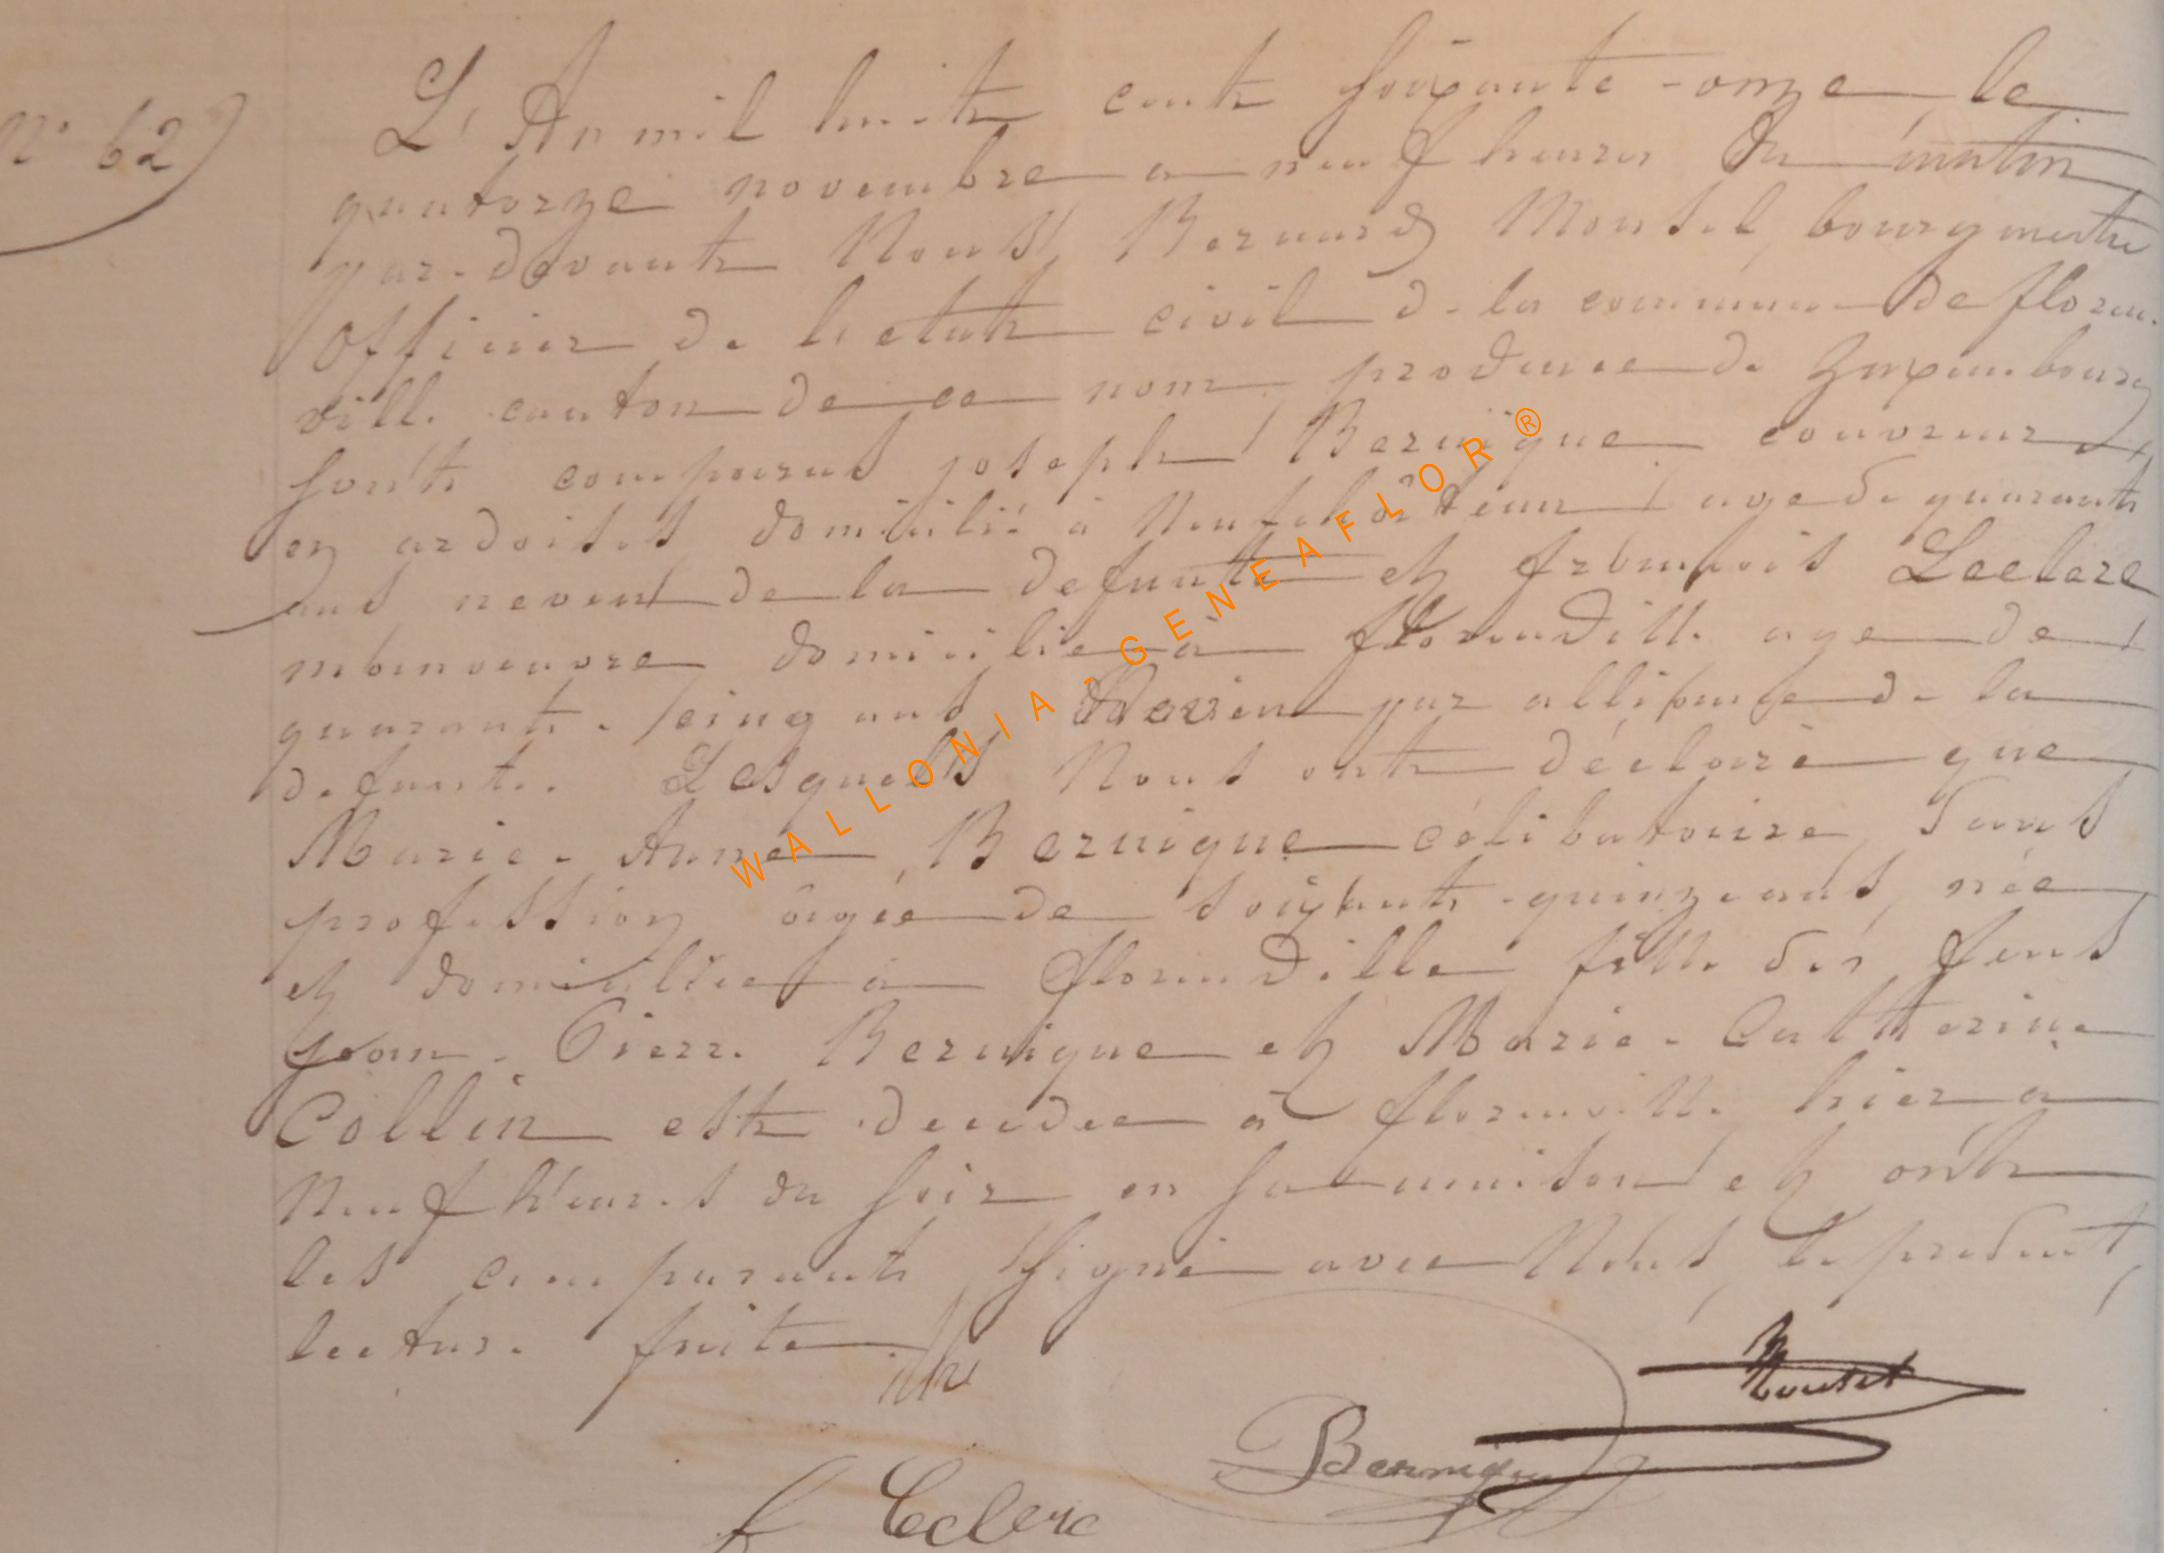 N° 62
L'An mil huit cent soixante-onze le
quatorze novembre a neuf heures du matin
par-devant Nous Bernard Moutel bourgmestre
officier de l'etat civil de la commune de floren-
ville canton de ce nom province de Luxembourg
sont comparus joseph Bernique couvreur
en ardoises domicilié à Neufchâteau age de quarante
ans neveu de la defunte et francois Leclerc
manoeuvre domicilie à florenville age de
quarante-cinq ans Neveu par alliance de la
defunte. Lesquels Nous ont déclaré que
Marie-Anne Bernique célibataire sans
profession âgée de soixante-quinze ans, née
et domiciliee a florenville fille des feus
jean-Pierre Bernique et Marie-Catherine
Collin est decedee à florenville hier a
Neuf heures du soir en sa maison et ont
les comparants signé avec Nous le present,
lecture faite
F Leclerc
Bernique
Moutel
WALLONIA-GENEAFLOR®